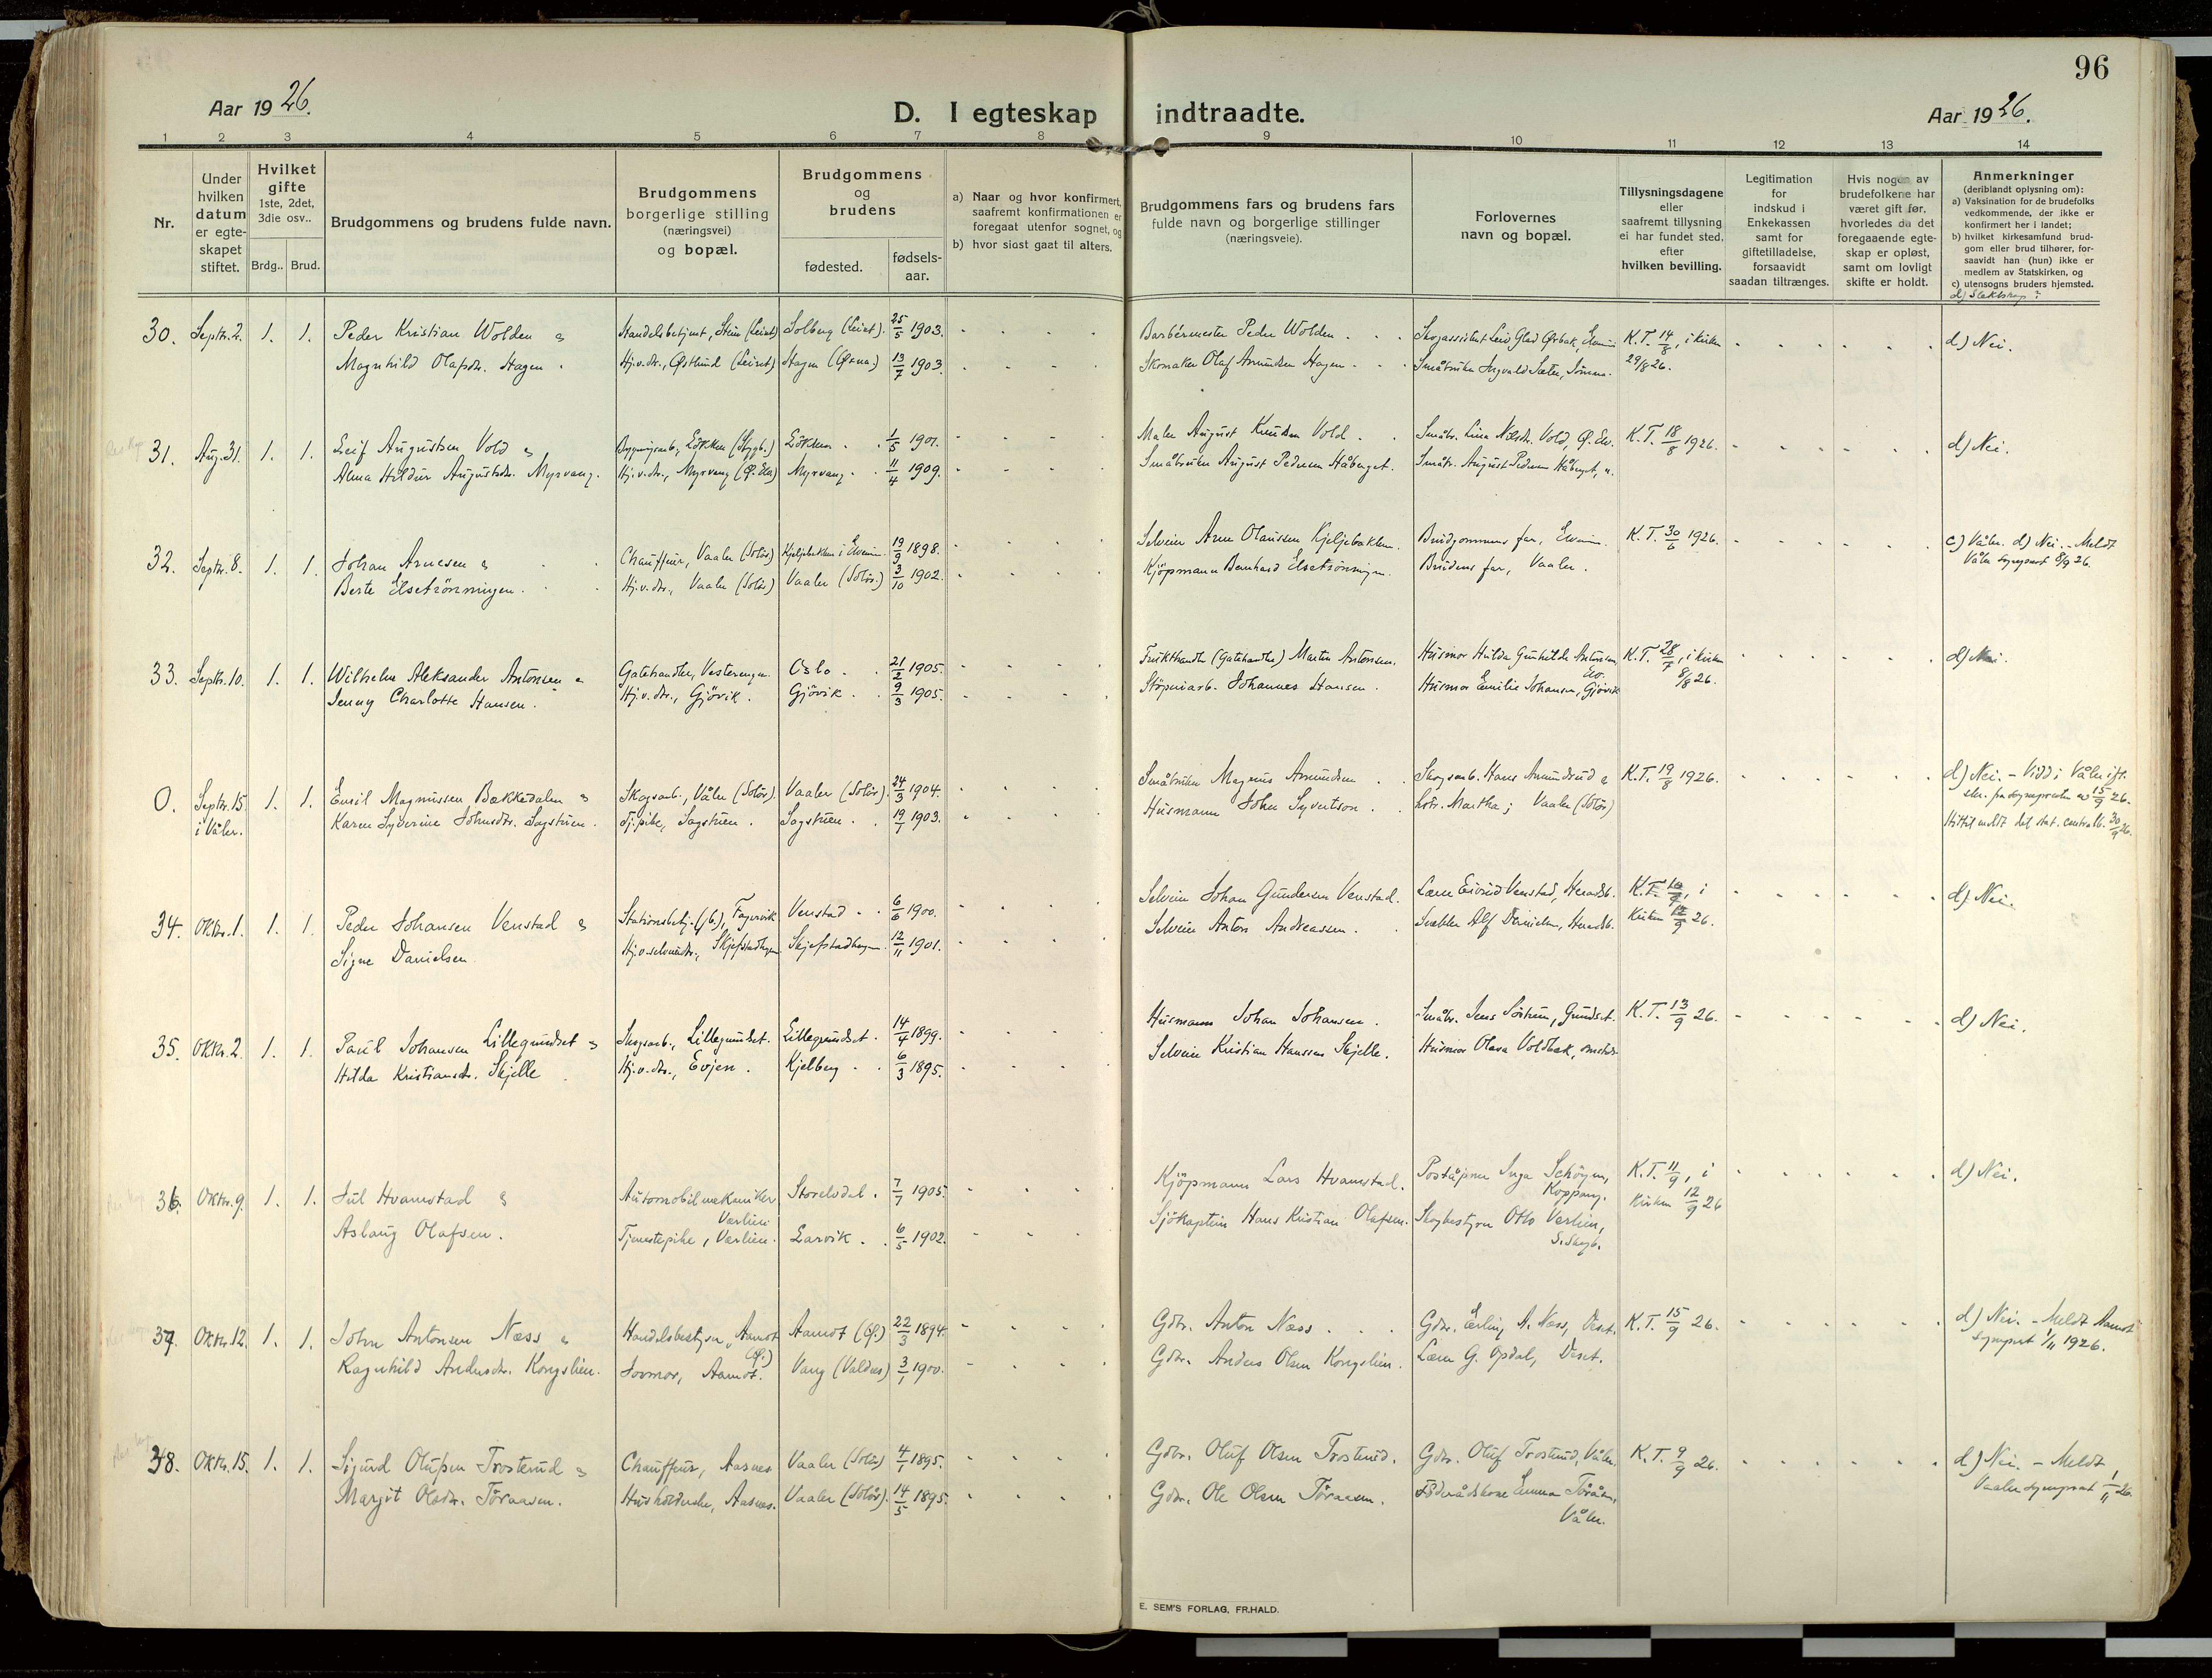 96
Aar 1926.
D. I egteskap indtraadte.
Aar 1926.
1 2 3 4 5 6 7 8 9 10 11 12 13 14
Nr.
Under
hvilken
datum
er egte-
skapet
stiftet.
Hvilket
gifte
1ste, 2det,
3die osv..
Brdg.. Brud.
Brudgommens og brudens fulde navn.
Brudgommens
borgerlige stilling
(næringsvei)
og bopæl.
Brudgommens
og
brudens
fødested.
fødsels-
aar.
a) Naar og hvor konfirmert,
saafremt konfirmationen er
foregaat utenfor sognet, og
b) hvor sidst gaat til alters.
Brudgommens fars og brudens fars
fulde navn og borgerlige stillinger
(næringsveie).
Forlovernes
navn og bopæl.
Tillysningsdagene
eller
saafremt tillysning
ei har fundet sted,
efter
hvilken bevilling.
Legitimation
for
indskud i
Enkekassen
samt for
giftetilladelse,
forsaavidt
saadan tiltrænges.
Hvis nogen av
brudefolkene har
været gift før,
hvorledes da det
foregaaende egte-
skap er opløst,
samt om lovligt
skifte er holdt.
Anmerkninger
(deriblandt oplysning om):
a) Vaksination for de brudefolks
vedkommende, der ikke er
konfirmert her i landet;
b) hvilket kirkesamfund brud-
gom eller brud tilhører, for-
saavidt han (hun) ikke er
medlem av Statskirken, og
c) utensogns bruders hjemsted.
d) Slektskap?
30. Septr. 2. 1. 1. Peder Kristian Wolden & Handelsbetjent, Stein (Leiret) Solberg (Leiret). 25/5 1903. Barbermester Peder Wolden Skogassistent Leif Glad Ørbak, K.T. 14/8, i kirken d) Nei.
Magnhild Olafsdr. Hagen. Hj.v.dtr., Østlund (Leiret) Hagen 13/7 1903. Skomaker Olaf Amundsen Hagen Småbruker Ingvald Sæter, 29/8 26.
31. Aug. 31. 1. 1. Leif Augustsen Vold & Løkken Løkken 1/5 1901. Maler August Knudsen Vold Småbr. Lina Nilsdr. Vold, K.T. 18/8 1926. d) Nei.
Alma Hildur Augustsdr. Myrvang. Hj.v.dtr., Myrvang Myrvang 11/4 1909. Småbruker August Pedersen Håberget. Småbr. August Pedersen Håberget,
32. Septr. 8. 1. 1. Johan Arnesen & Chauffeur, Vaaler (Solør) Kjeljebakken i Elverum 19/9 1898. Selveier Arne Olaussen Kjeljebakken. Brudgommens far, Elverum. K.T. 30/6 1926. c) Våler. d) Nei. - Meldt
Berte Elsetrønningen. Hj.v.dtr., Vaaler (Solør) Vaaler (Solør.) 3/10 1902. Kjöpmann Bernhard Elsetrönningen. Brudens far, Vaaler. Våler sogneprest 8/9 26.
33. Septr. 10. 1. 1. Wilhelm Aleksander Antonsen & Gatehandler, Vesterengen. Oslo. 21/2 1905. Frukthandler (Gatehandler) Martin Antonsen. Husmor Hulda Gunhilda Antonsen, Elv. K.T. 28/7, i kirken d) Nei.
Jenny Charlotte Hansen. Hj.v.dtr., Gjövik. Gjövik. 9/3 1905. Støperiarb. Johannes Hansen. Husmor Emilie Johansen, Gjövik 8/8 26.
0. Septr. 15. 1. 1. Emil Magnussen Bækkedalen & Skogsarb., Våler (Solør) Vaaler (Solør). 24/3 1904. Småbruker Magnus Amundsen Skogsarb. Hans Amundsrud & K.T. 19/8 1926. d) Nei. - Viddi Våler ifl.
i Våler. Karen Syverine Johnsdtr. Sagstuen. Tj.pike, Sagstuen. Sagstuen. 19/7 1903. Husmann John Syvertsen hstr. Martha; Vaaler (Solør) skr. fra sognepresten av 15/9 26.
Hittil meldt det stat. centralb. 30/9 26.
34. Oktr. 1. 1. 1. Peder Johansen Venstad & Stationsbetj. Fagervik Venstad 6/6 1900. Selveier Johan Gundersen Venstad. Lærer Eivind Venstad, Heradsb. K.T. i d) Nei.
Signe Danielsen. Hj.v. selveierdtr., Skjefstadhagen Skjefstadhagen. 12/11 1901. Selveier Anton Andreassen. Alf Danielsen, Heradsb. Kirken 12/9 26.
35. Oktr. 2. 1. 1. Paul Johansen Lillegrundset & Skogsarb., Lillegrundset. Lillegrundset. 14/4 1899. Husmann Johan Johansen. Småbr. Jens Sörhus, Grundset. K.T. 13/9 26. d) Nei.
Hilda Kristiansdr. Skjelle Hj.v.dtr., Evjen. Kjelberg. 6/3 1895. Selveier Kristian Hanssen Skjelle. Husmor Olava Voldbak,
36. Oktr. 9. 1. 1. Jul Hvamstad & Automobilmekaniker Værlien. Storelvdal. 7/7 1905. Kjöpmann Lars Hvamstad. Poståpner Inga Schøyen, Koppang. K.T. 11/9, i d) Nei.
Aslaug Olafsen. Tjenestepike, Værlien. Larvik. 6/5 1902. Sjökaptein Hans Kristian Olafsen. Skogbestyrer Otto Værlien, S.Skogb. Kirken 12/9 26
37. Oktr. 12. 1. 1. John Antonsen Næss & Handelsbestyrer, Aamot Aamot (Øf.) 22/3 1894. Gdbr. Anton Næss Gdbr. Erling A. Næss, Deset. K.T. 15/9 26. d) Nei. - Meldt Aamot
Ragnhild Andersdr. Kongslien. Jormor, Aamot. (Øf.) Vang (Valdres) 3/1 1900. Gdbr. Anders Olsen Kongslien. Lærer G. Opdal, Deset. sogneprest 1/11 1926.
38. Oktr. 15. 1. 1. Sigurd Olufsen Trosterud & Chauffeur, Aasnes Vaaler (Solør) 4/1 1895. Gdbr. Oluf Olsen Trosterud. Gdbr. Oluf Trosterud, Våler. K.T. 9/9 26. d) Nei. - Meldt
Margit Olsdr. Töraasen. Husholderske, Aasnes. Vaaler (Solør). 14/5 1895. Gdbr. Ole Olsen Töraasen. Föderådskone Emma Töråsen, Våler. Vaaler sogneprest 1/11 26.
E. SEM'S FORLAG, FR.HALD.